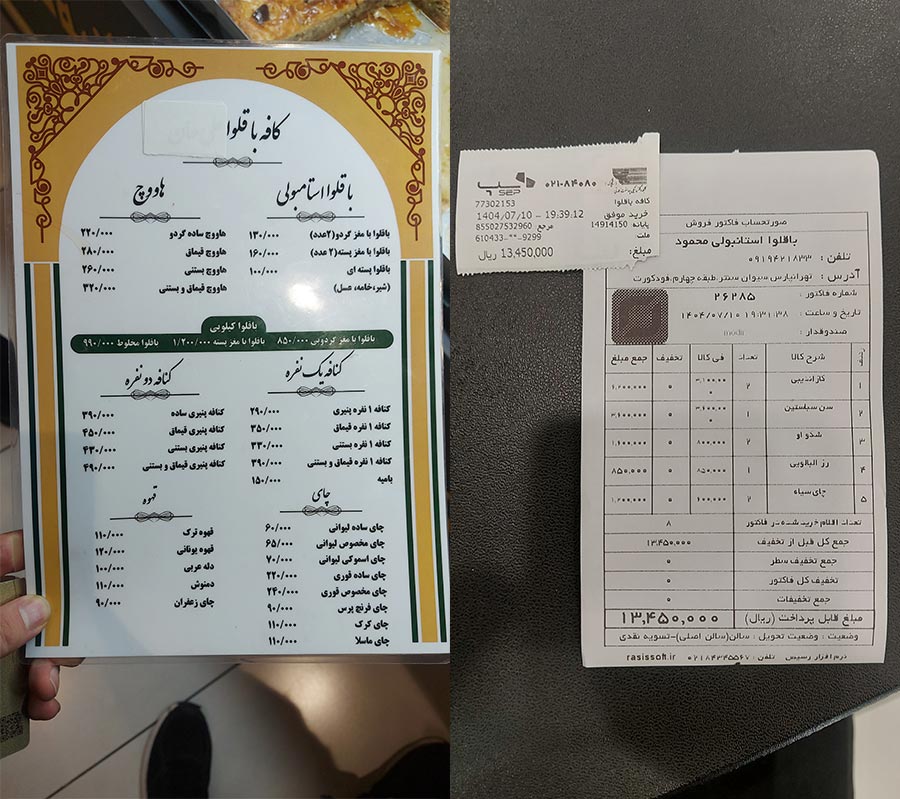 کافه باقلوا
باقلوا استامبولی
باقلوا با مغز گردو (۲عدد) ۱۳۰/۰۰۰
باقلوا با مغز پسته (۲ عدد) ۱۶۰/۰۰۰
باقلوا پسته ای ۱۰۰/۰۰۰
(شیر،خامه، عسل)
هاووچ
هاووچ ساده گردو ۲۲۰/۰۰۰
هاووچ قیماق ۲۸۰/۰۰۰
هاووچ بستنی ۲۶۰/۰۰۰
هاووچ قیماق و بستنی ۳۲۰/۰۰۰
باقلوا کیلویی
باقلوا با مغز گردویی ۸۵۰/۰۰۰ باقلوا با مغز پسته ۱/۲۰۰/۰۰۰ باقلوا مخلوط ۹۹۰/۰۰۰
کنافه یک نفره
کنافه ۱ نفره پنیری ۲۹۰/۰۰۰
کنافه ۱ نفره قیماق ۳۵۰/۰۰۰
کنافه ۱ نفره بستنی ۳۳۰/۰۰۰
کنافه ۱ نفره قیماق و بستنی ۳۹۰/۰۰۰
بامیه ۱۵۰/۰۰۰
کنافه دو نفره
کنافه پنیری ساده ۳۹۰/۰۰۰
کنافه پنیری قیماق ۴۵۰/۰۰۰
کنافه پنیری بستنی ۴۳۰/۰۰۰
کنافه پنیری قیماق و بستنی ۴۹۰/۰۰۰
چای
چای ساده لیوانی ۶۰/۰۰۰
چای مخصوص لیوانی ۶۵/۰۰۰
چای اسموکی لیوانی ۷۰/۰۰۰
چای ساده قوری ۲۲۰/۰۰۰
چای مخصوص قوری ۲۴۰/۰۰۰
چای فرنچ پرس ۹۰/۰۰۰
چای کرک ۱۱۰/۰۰۰
چای ماسلا ۱۱۰/۰۰۰
قهوه
قهوه ترک ۱۱۰/۰۰۰
قهوه یونانی ۱۲۰/۰۰۰
دله عربی ۱۰۰/۰۰۰
دمنوش ۱۱۰/۰۰۰
چای زعفران ۹۰/۰۰۰
۰۲۱-۸۴۰۸۰ سپ
SEP
کافه باقلوا 77302153
خرید موفق 1404/07/10 - 19:39:12
پایانه 14914150 مرجع 855027532960
ملت 610433-**-9299
مبلغ: 13,450,000 ریال
صورتحساب فاکتور فروش
باقلوا استانبولی محمود
تلفن : ۰۹۱۹۴۲۱۸۳۳
آدرس : تهرانپارس سیوان سنتر.طبقه چهارم.فودکورت
شماره فاکتور : ۲۶۲۸۵
تاریخ و ساعت : ۱۴۰۴/۰۷/۱۰ ۱۹:۳۱:۳۸
صندوقدار : modir
ردیف شرح کالا تعداد فی کالا تخفیف جمع مبلغ
۱ کازاندیبی ۲ ۳,۱۰۰,۰۰۰ ۰ ۶,۲۰۰,۰۰۰
۲ سن سباستین ۱ ۳,۶۰۰,۰۰۰ ۰ ۳,۶۰۰,۰۰۰
۳ شدو او ۲ ۸۰۰,۰۰۰ ۰ ۱,۶۰۰,۰۰۰
۴ رز البالویی ۱ ۸۵۰,۰۰۰ ۰ ۸۵۰,۰۰۰
۵ چای سیاه ۲ ۶۰۰,۰۰۰ ۰ ۱,۲۰۰,۰۰۰
تعداد اقلام خرید شده در فاکتور ۸
جمع کل قبل از تخفیف ۱۳,۴۵۰,۰۰۰
جمع تخفیف سطر ۰
تخفیف کل فاکتور ۰
جمع تخفیفات ۰
مبلغ قابل پرداخت (ریال) ۱۳,۴۵۰,۰۰۰
وضعیت : وضعیت تحویل : سالن(سالن اصلی)-تسویه نقدی
نرم افزار رسیس تلفن : ۰۲۱۸۴۳۴۵۵۶۷ rasissoft.ir